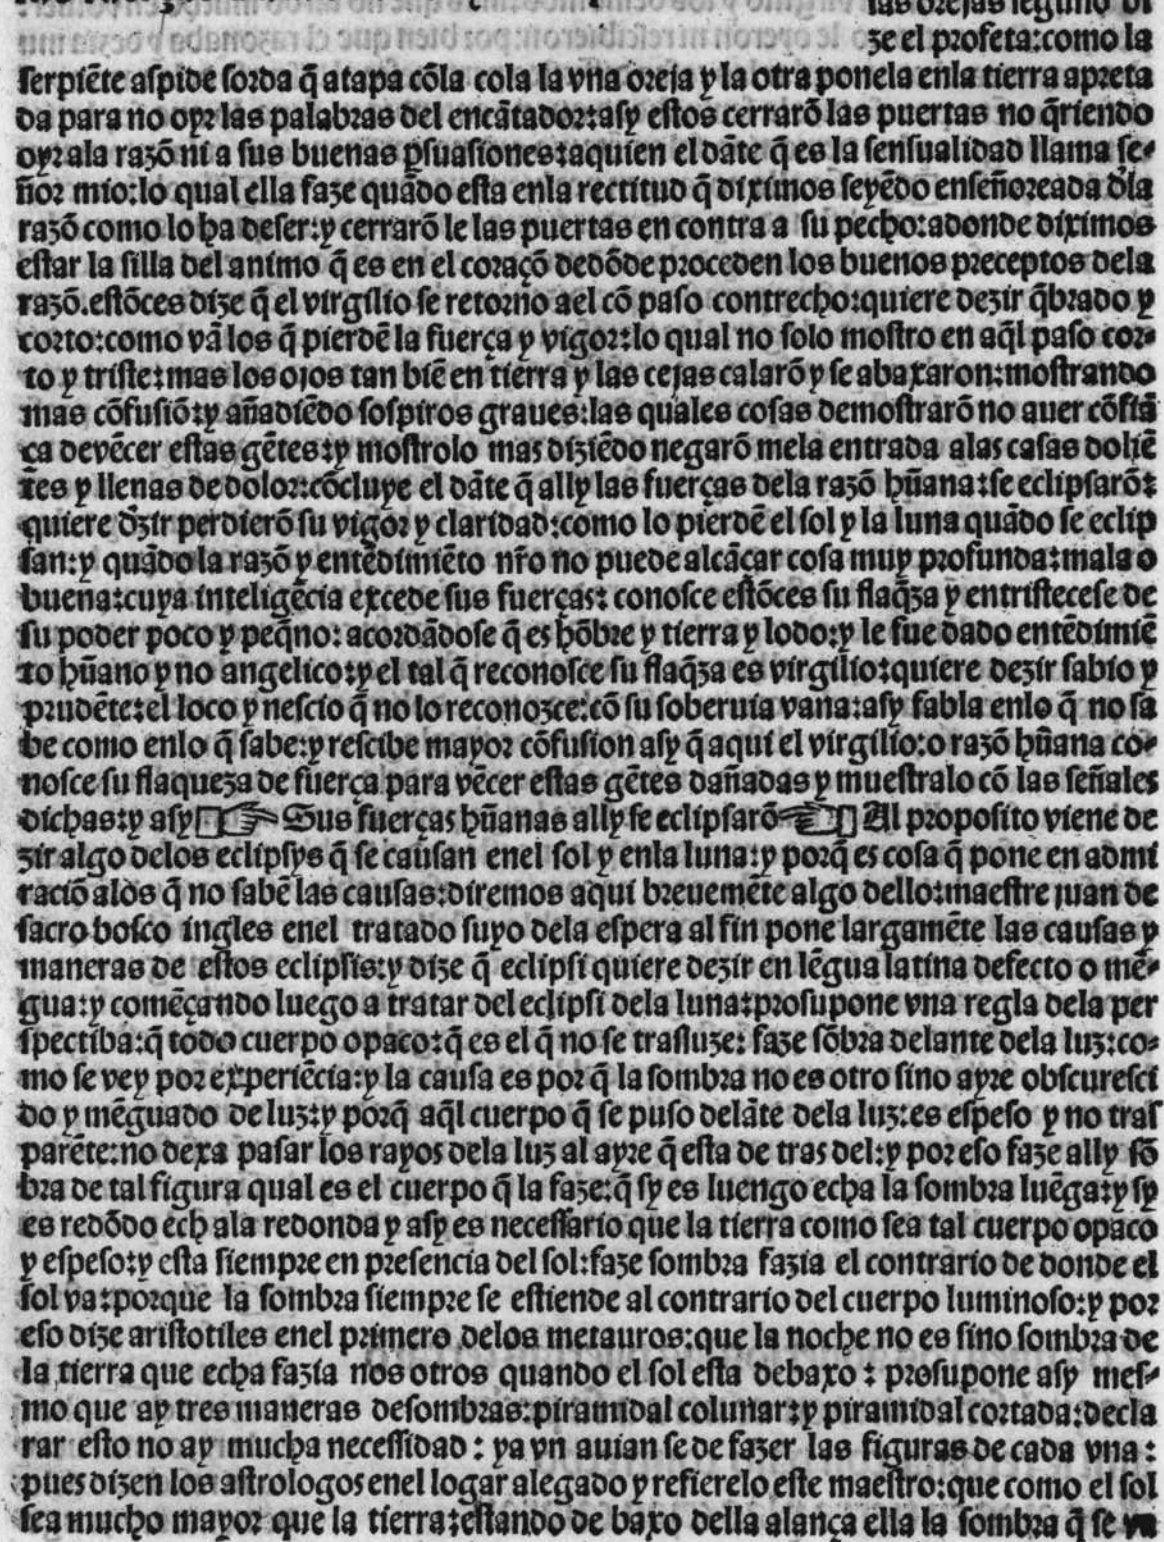 las orejas segund di
ze el profeta:como la
serpiẽte aspide sorda q̃ atapa cõla cola la vna oreja y la otra ponela enla tierra apreta
da para no oyr las palabras del encãtador:asy estos cerrarõ las puertas no q̃riendo
oyr ala razõ ni a sus buenas ꝑsuasiones:aquien el dãte q̃ es la sensualidad llama se-
ñor mio:lo qual ella faze quãdo esta enla rectitud q̃ diximos seyẽdo enseñoreada d̓la
razõ como lo ha deser:y cerrarõ le las puertas en contra a su pecho:adonde diximos
estar la silla del animo q̃ es en el coraçõ dedõde proceden los buenos preceptos dela
razõ.estõces dize q̃ el virgilio se retorno ael cõ paso contrecho:quiere dezir q̃brado y
corto:como vã los q̃ pierdẽ la fuerça y vigor:lo qual no solo mostro en aq̃l paso cor-
to y triste:mas los ojos tan biẽ en tierra y las cejas calarõ y se abaxaron:mostrando
mas cõfusiõ:y añadiẽdo sospiros graues:las quales cosas demostrarõ no auer cõfiã
ça devẽcer estas gẽtes:y mostrolo mas diziẽdo negarõ mela entrada alas casas doliẽ
tes y llenas de dolor:cõcluye el dãte q̃ ally las fuerças dela razõ hũana:se eclipsarõ:
quiere d̓zir perdierõ su vigor y claridad:como lo pierdẽ el sol y la luna quãdo se eclip
san:y quãdo la razõ y entẽdimiẽto nr̃o no puede alcãçar cosa muy profunda:mala o
buena:cuya inteligẽcia excede sus fuerças: conosce estõces su flaq̃za y entristecese de
su poder poco y peq̃no: acordãdose q̃ es hõbre y tierra y lodo:y le fue dado entẽdimiẽ
to hũano y no angelico:y el tal q̃ reconosce su flaq̃za es virgilio:quiere dezir sabio y
prudẽte:el loco y nescio q̃ no lo reconozce:cõ su soberuia vana:asy fabla enlo q̃ no sa
be como enlo q̃ sabe:y rescibe mayor cõfusion asy q̃ aqui el virgilio:o razõ hũana co-
nosce su flaqueza de fuerça para vẽcer estas gẽtes dañadas y muestralo cõ las señales
dichas:y asy ☞ Sus fuerças hũanas ally se eclipsarõ ☜ Al proposito viene de
zir algo delos eclipsys q̃ se causan enel sol y enla luna:y porq̃ es cosa q̃ pone en admi
raciõ alos q̃ no sabẽ las causas:diremos aqui breuemẽte algo dello:maestre juan de
sacro bosco ingles enel tratado suyo dela espera al fin pone largamẽte las causas y
maneras de estos eclipsis:y dize q̃ eclipsi quiere dezir en lẽgua latina defecto o mẽ-
gua:y comẽçando luego a tratar del eclipsi dela luna:prosupone vna regla dela per
spectiba:q̃ todo cuerpo opaco:q̃ es el q̃ no se trasluze: faze sõbra delante dela luz:co-
mo se vey por experiẽcia:y la causa es por q̃ la sombra no es otro sino ayre obscuresci
do y mẽguado de luz:y porq̃ aq̃l cuerpo q̃ se puso delãte dela luz:es espeso y no tras
parẽte:no dexa pasar los rayos dela luz al ayre q̃ esta de tras del:y por eso faze ally sõ
bra de tal figura qual es el cuerpo q̃ la faze:q̃ sy es luengo echa la sombra luẽga:y sy
es redõdo ech ala redonda y asy es necessario que la tierra como sea tal cuerpo opaco
y espeso:y esta siempre en presencia del sol:faze sombra fazia el contrario de donde el
sol va:porque la sombra siempre se estiende al contrario del cuerpo luminoso:y por
eso dize aristotiles enel primero delos metauros:que la noche no es sino sombra de
la tierra que echa fazia nos otros quando el sol esta debaxo : presupone asy mes-
mo que ay tres maneras desombras:piramidal colunar:y piramidal cortada:decla
rar esto no ay mucha necessidad : ya vn auian se de fazer las figuras de cada vna :
pues dizen los astrologos enel logar alegado y refierelo este maestro:que como el sol
sea mucho mayor que la tierra:estando de baxo della alança ella la sombra q̃ se va